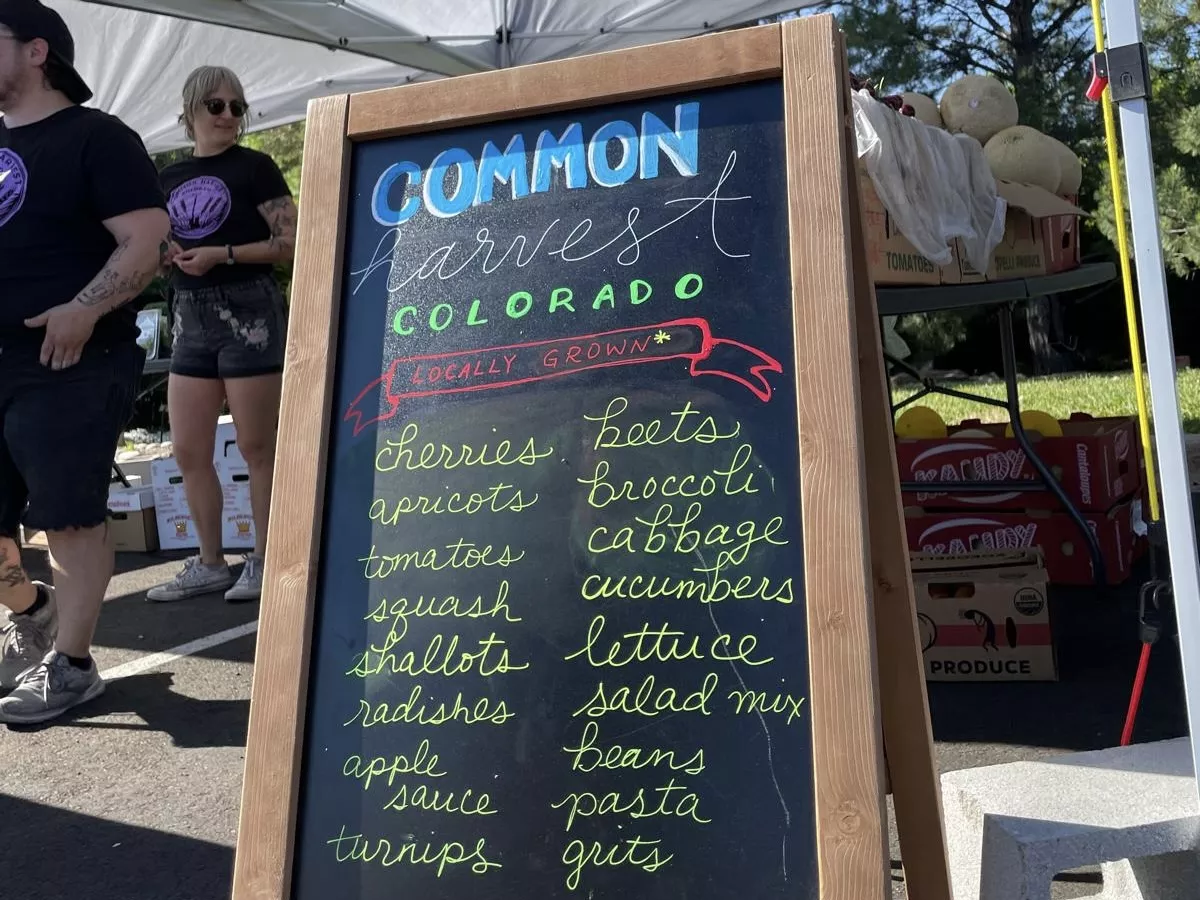 COMMON
harvest
COLORADO
LOCALLY GROWN*
cherries
apricots
tomatoes
squash
shallots
radishes
apple
sauce
turnips
beets
broccoli
cabbage
cucumbers
lettuce
salad mix
beans
pasta
grits
TOMATOES
PRODUCE
KANDY
Cantaloupes
KANDY
PRODUCE